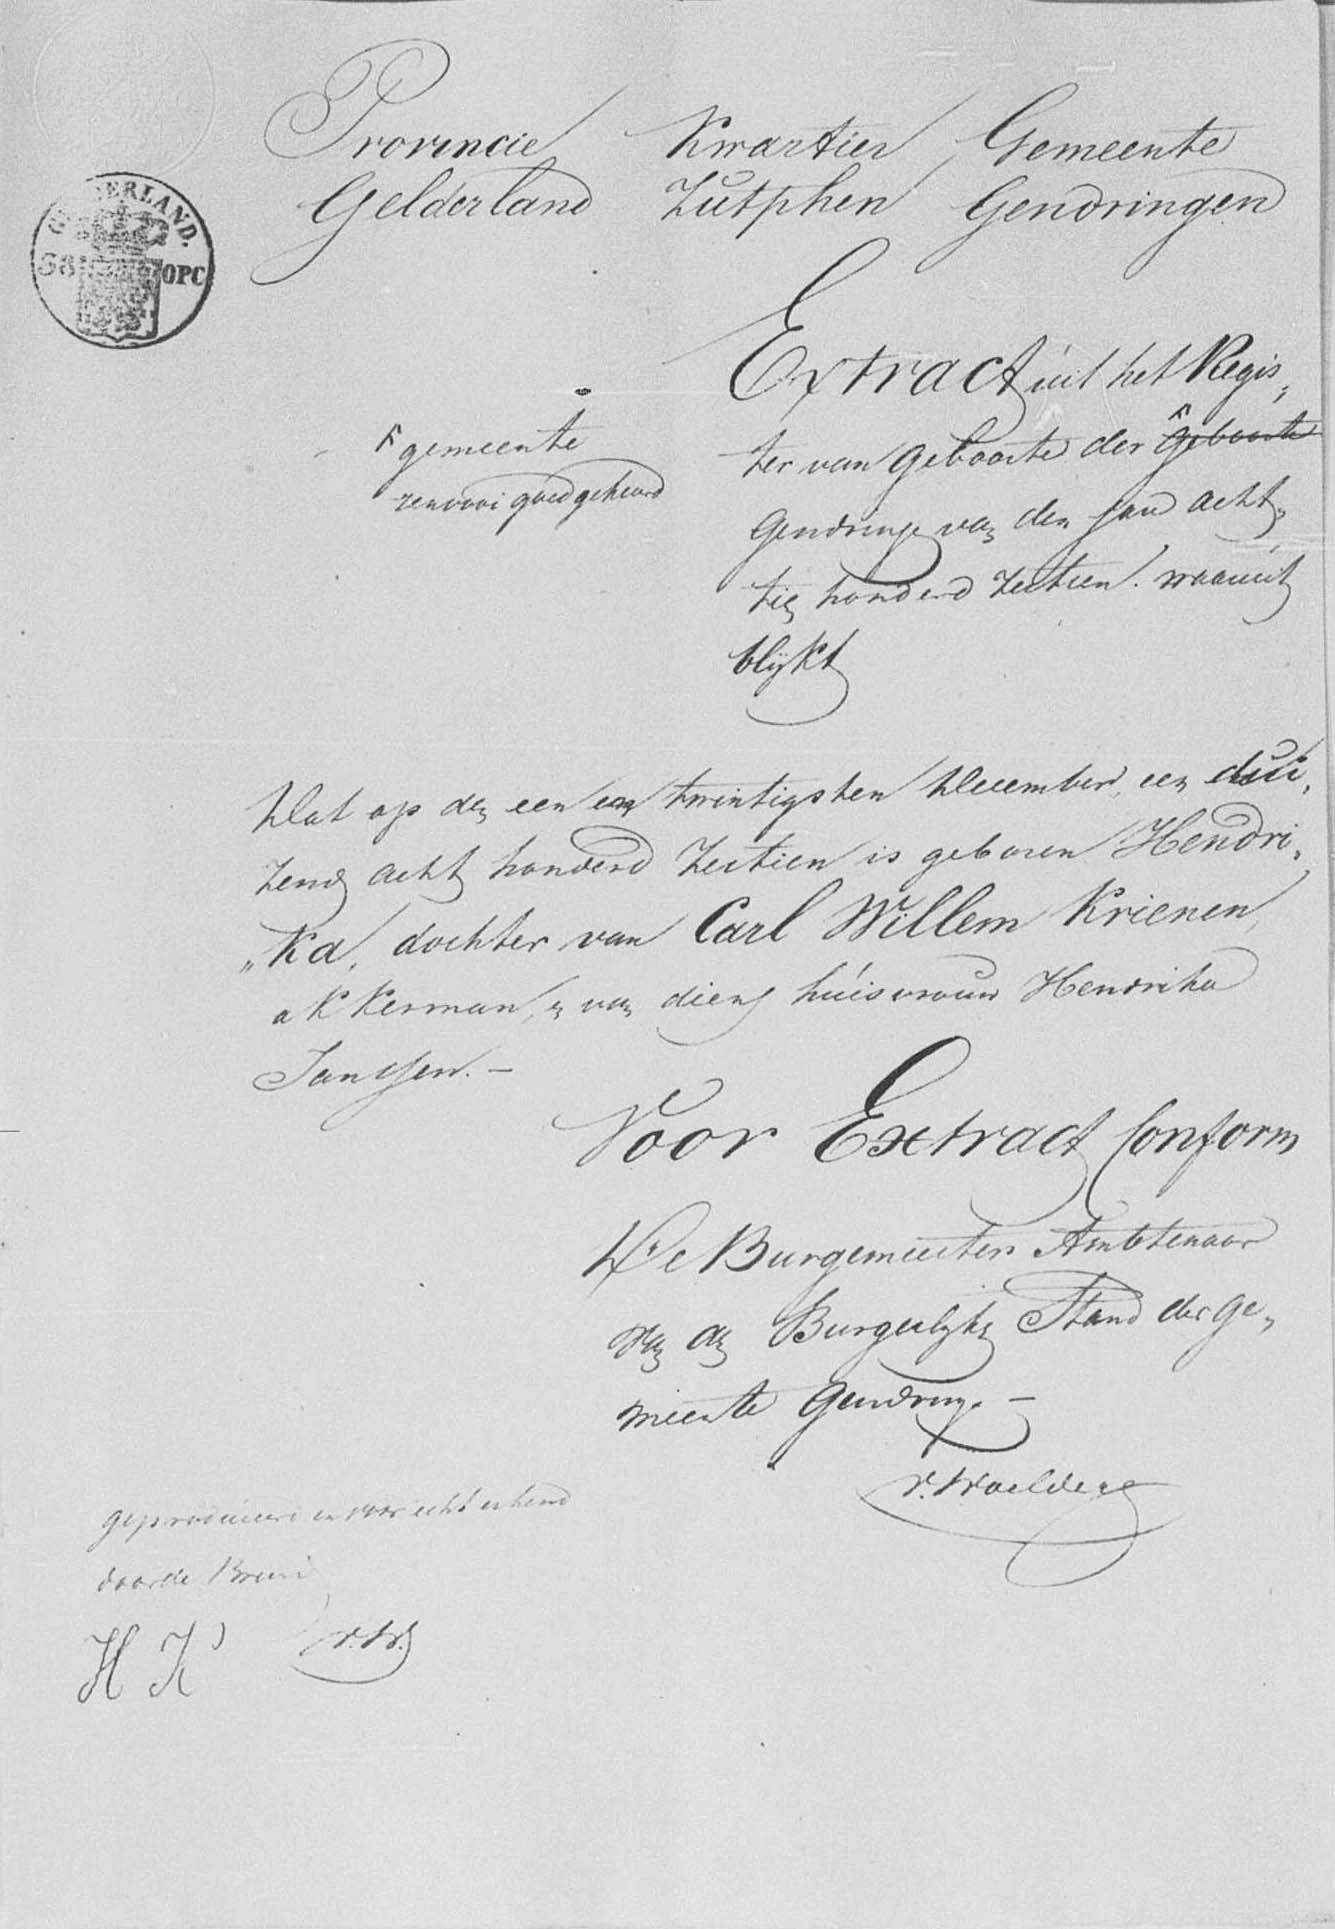 Provincie Kwartier Gemeente
Gelderland Zutphen Gendringen
GELDERLAND.
38 OPC
Extract uit het Regis„
ter van Geboorte der Geboorte
Gendringe van den jare acht„
tien honderd Zestien. waaruit
blijkt
gemeente
renvooi goedgekeurd
Dat op den een en twintigsten December, een dui„
zend acht honderd Zestien is geboren Hendri„
„ka, dochter van Carl Willem Krienen,
akkerman, en van diens huisvrouw Hendrika
Janssen. —
Voor Extract Conform
De Burgemeester Ambtenaar
van den Burgerlijken Stand der ge„
meente Gendringe. —
v. Woelderen
geproduceerd en voor echt erkend
door de Bruid
H K v. W.